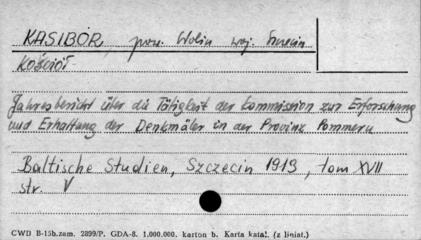 KASIBÓR, pow. Wolin woj. Szczecin
Kościół
Jahresbericht über die Tätigkeit der Commission zur Erforschung
und Erhaltung der Denkmäler in der Provinz Pommern
Baltische Studien, Szczecin 1913, tom XVII
str. V
CWD B-15b.zam. 2899/P. GDA-8. 1.000.000. karton b. Karta katal. (z liniat.)